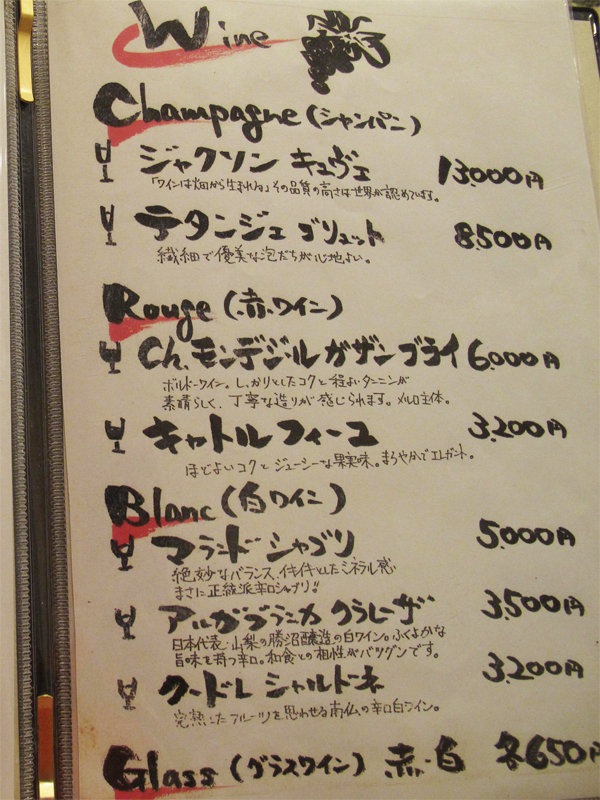 Wine
Champagne (シャンパン)
ジャクソン キュヴェ 13,000円
「ワインは畑から生まれる」その品質の高さは世界が認めています。
テタンジェ ブリュット 8,500円
繊細で優美な泡だちが心地よい。
Rouge (赤ワイン)
Ch. モンデジール ガザン ブライ 6,000円
ボルドーワイン。しっかりとしたコクと程よいタンニンが
素晴らしく、丁寧な造りが感じられます。メルロ主体。
キャトル フィーユ 3,200円
ほどよいコクとジューシーな果実味。まろやかでエレガント。
Blanc (白ワイン)
マランド シャブリ 5,000円
絶妙なバランス、イキイキとしたミネラル感
まさに正統派辛口シャブリ!!
アルガブランカ クラレーザ 3,500円
日本代表:山梨の勝沼醸造の白ワイン。ふくよかな
旨味を持つ辛口。和食との相性がバツグンです。
クードレ シャルドネ 3,200円
完熟したフルーツを思わせる南仏の辛口白ワイン。
Glass (グラスワイン) 赤・白 各650円